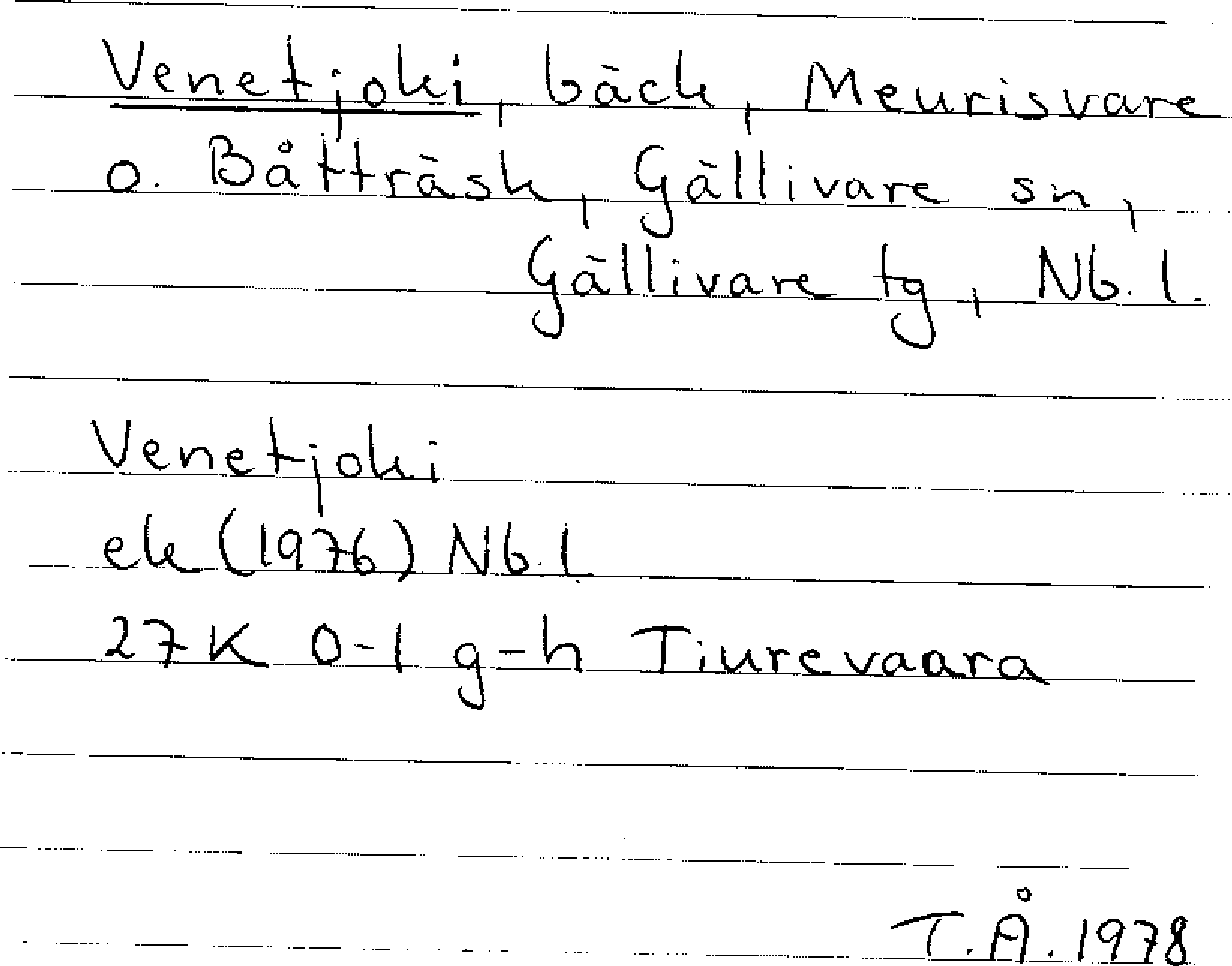 Venetjoki, bäck, Meurisvare
o. Båtträsk, Gällivare sn,
Gällivare tg, Nb. l.
Venetjoki
ek (1976) Nb. l
27K 0-1 g-h Tiurevaara
T.Å. 1978